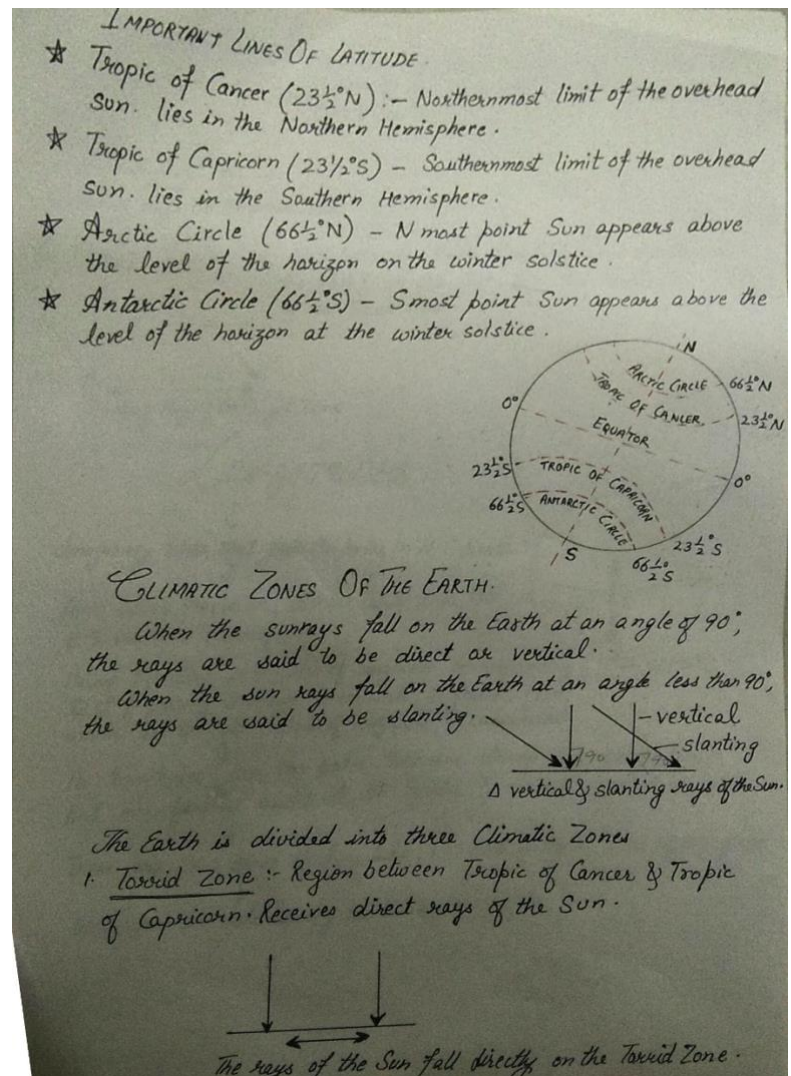 IMPORTANT LINES OF LATITUDE.
☆ Tropic of Cancer (23½°N) :- Northernmost limit of the overhead
sun. lies in the Northern Hemisphere.
☆ Tropic of Capricorn (23½°S) - Southernmost limit of the overhead
sun. lies in the Southern Hemisphere.
☆ Arctic Circle (66½°N) - N most point Sun appears above
the level of the horizon on the winter solstice.
☆ Antarctic Circle (66½°S) - Smost point Sun appears above the
level of the horizon at the winter solstice.
N
ARCTIC CIRCLE 66½°N
TROPIC OF CANCER 23½°N
0°
EQUATOR
0°
23½°S TROPIC OF CAPRICORN
66½°S ANTARCTIC CIRCLE
23½°S
S
66½°S
CLIMATIC ZONES OF THE EARTH.
When the sunrays fall on the Earth at an angle of 90°,
the rays are said to be direct or vertical.
When the sun rays fall on the Earth at an angle less than 90°,
the rays are said to be slanting.
vertical
slanting
90
∆ vertical & slanting rays of the Sun.
The Earth is divided into three Climatic Zones
1. Torrid Zone :- Region between Tropic of Cancer & Tropic
of Capricorn. Receives direct rays of the Sun.
The rays of the Sun fall directly on the Torrid Zone.